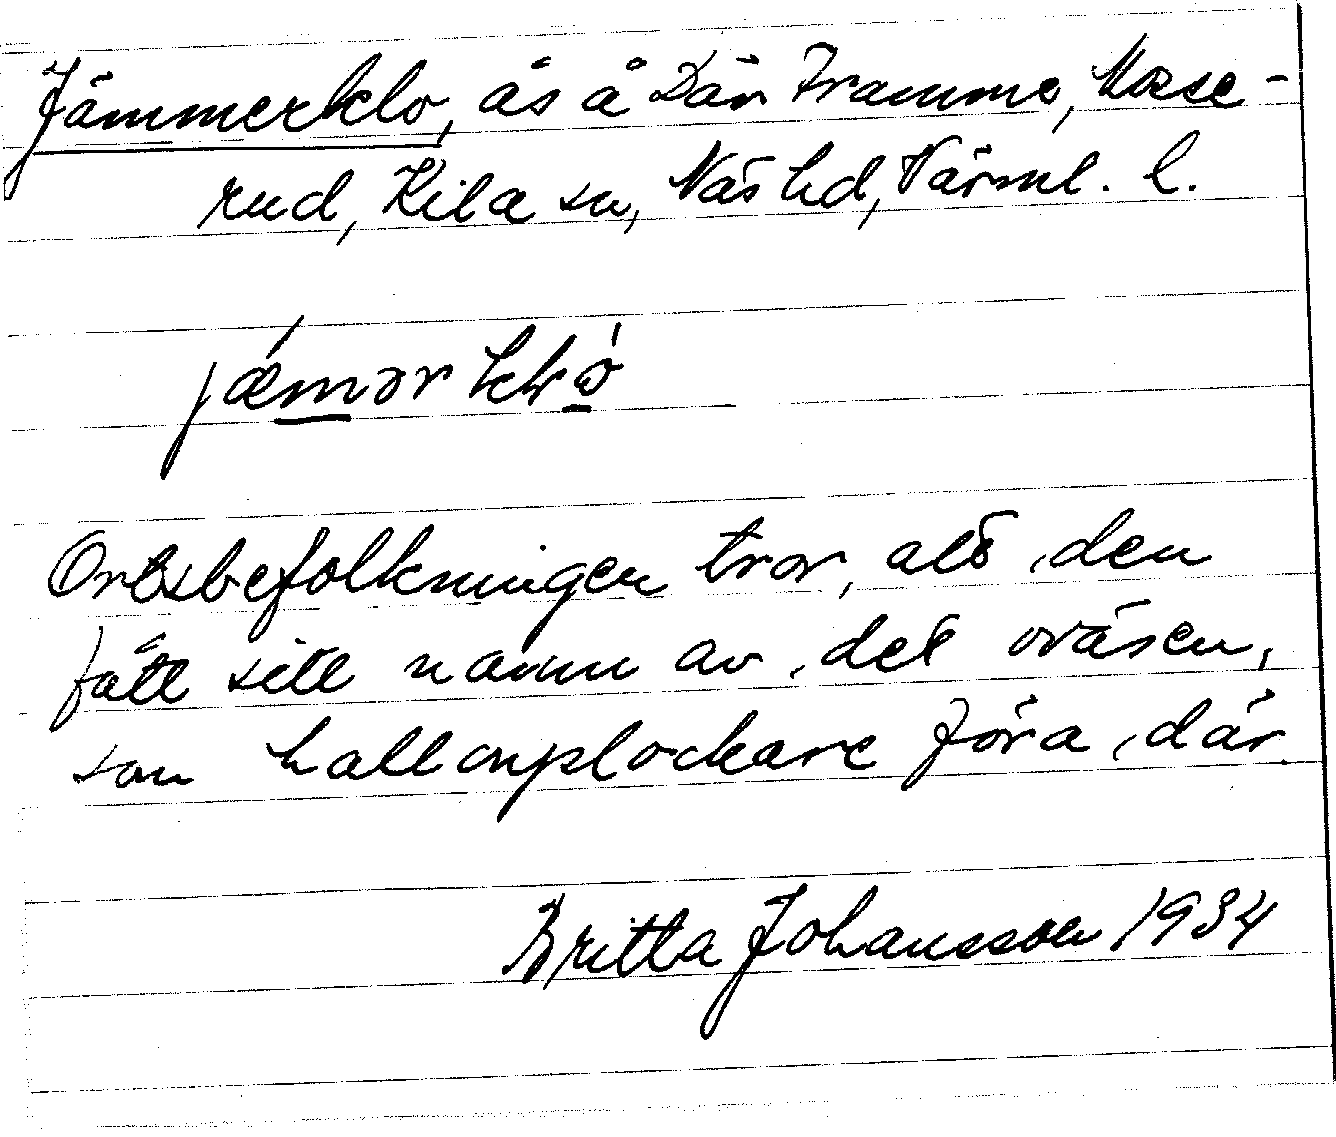 Jämmerklo, ås å Där Framme, Mose-
rud, Kila sn, Näs hd, Värml. l.
Ortsbefolkningen tror, att den
fått sitt namn av det oväsen,
som hallonplockare föra där.
Britta Johansson 1934